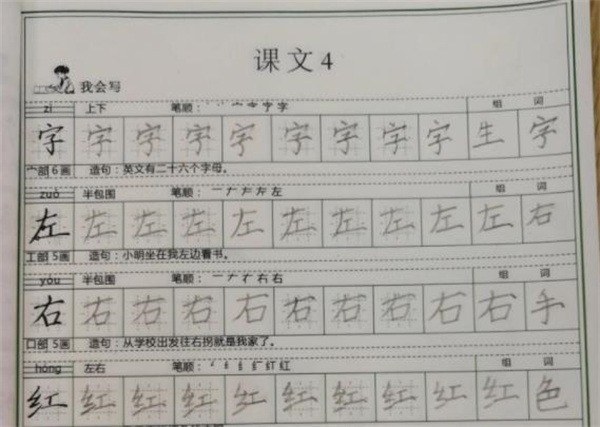 课文4
我会写
zì 上下 笔顺: 组 词
字 字 字 字 字 字 字 字 字 生 字
宀部6画 造句:英文有二十六个字母。
zuǒ 半包围 笔顺:一ナ𠂇左左 组 词
左 左 左 左 左 左 左 左 左 左 右
工部5画 造句:小明坐在我左边看书。
yòu 半包围 笔顺:一ナ右右 组 词
右 右 右 右 右 右 右 右 右 右 手
口部5画 造句:从学校出发往右拐就是我家了。
hóng 左右 笔顺: 红 组 词
红 红 红 红 红 红 红 红 红 红 色